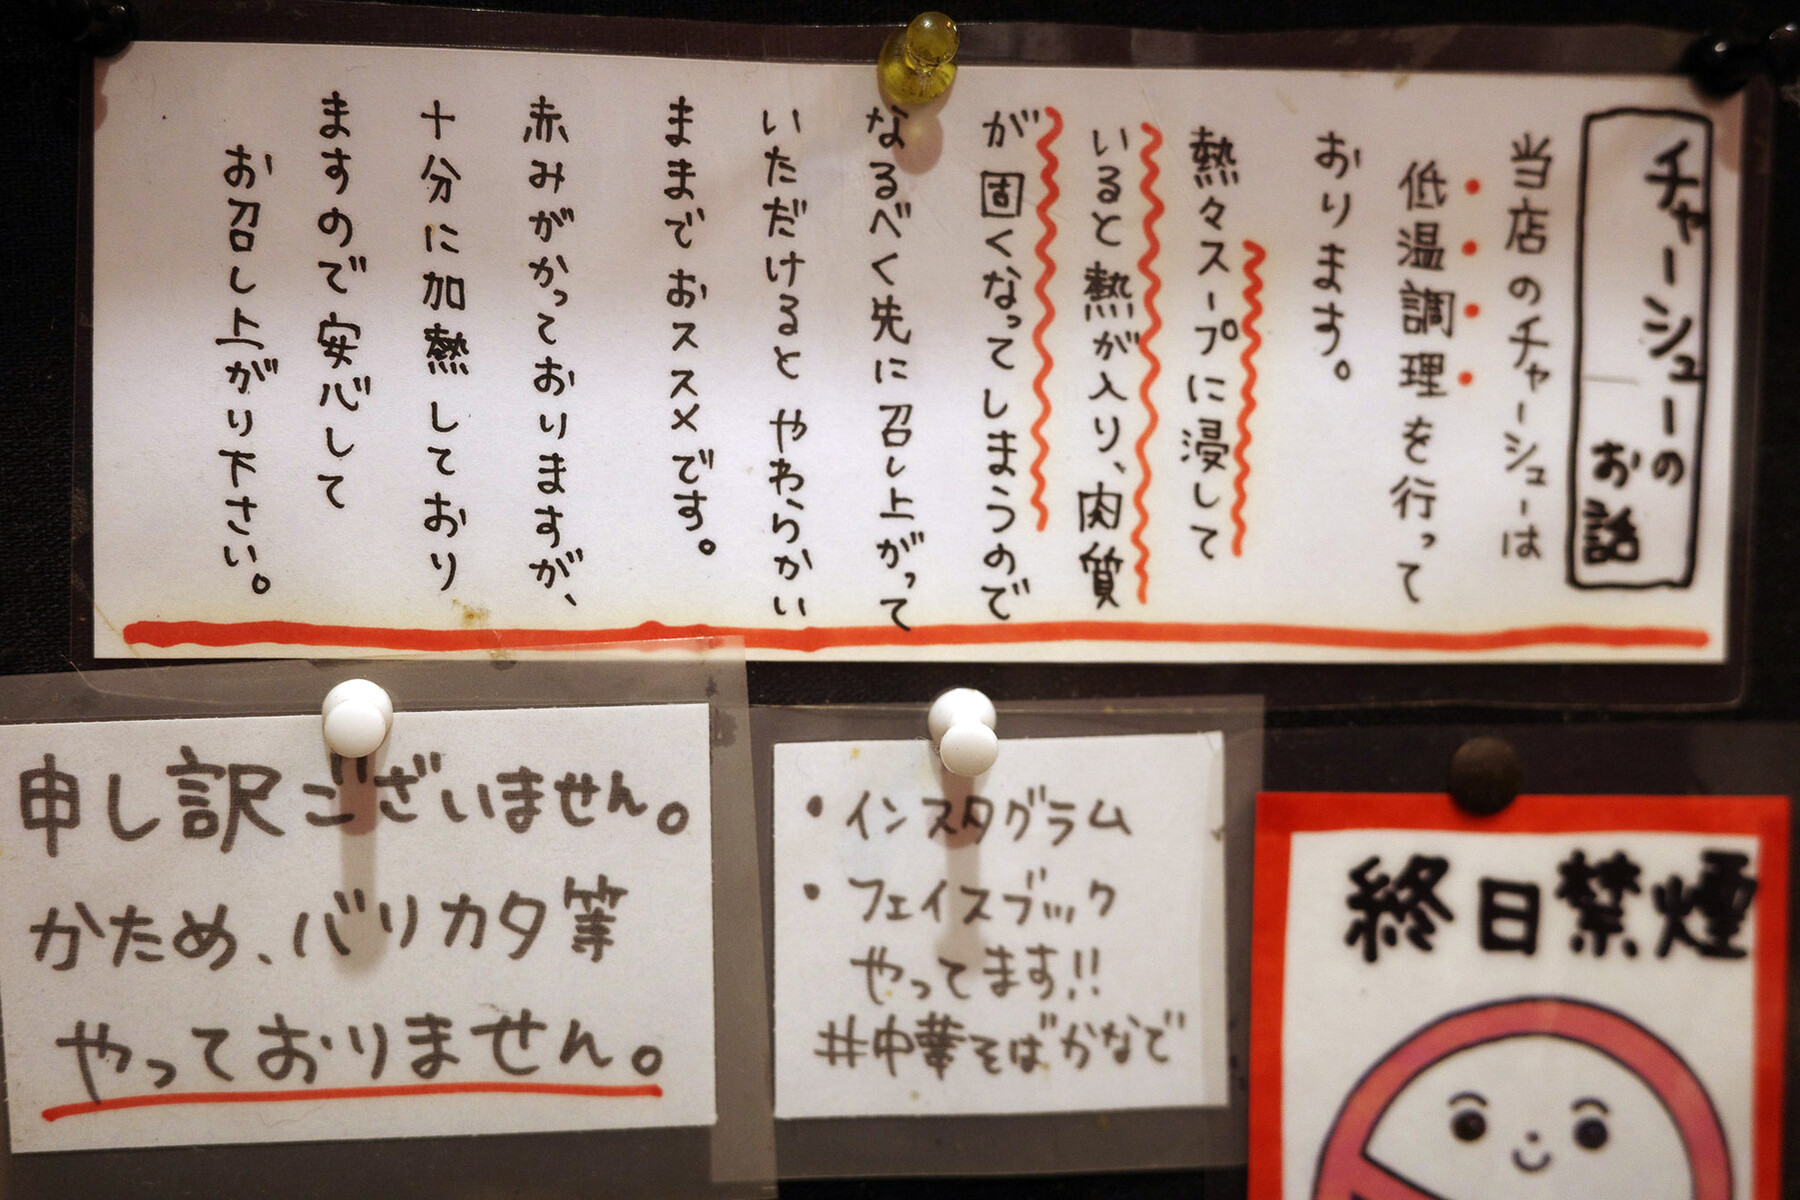 チャーシューの
お話
当店のチャーシューは
低温調理を行って
おります。
熱々スープに浸して
いると熱が入り、肉質
が固くなってしまうので
なるべく先に召し上がって
いただけると やわらかい
ままで おススメです。
赤みがかっておりますが、
十分に加熱しており
ますので安心して
お召し上がり下さい。
申し訳ございません。
かため、バリカタ等
やっておりません。
・インスタグラム
・フェイスブック
やってます!!
#中華そばかなで
終日禁煙